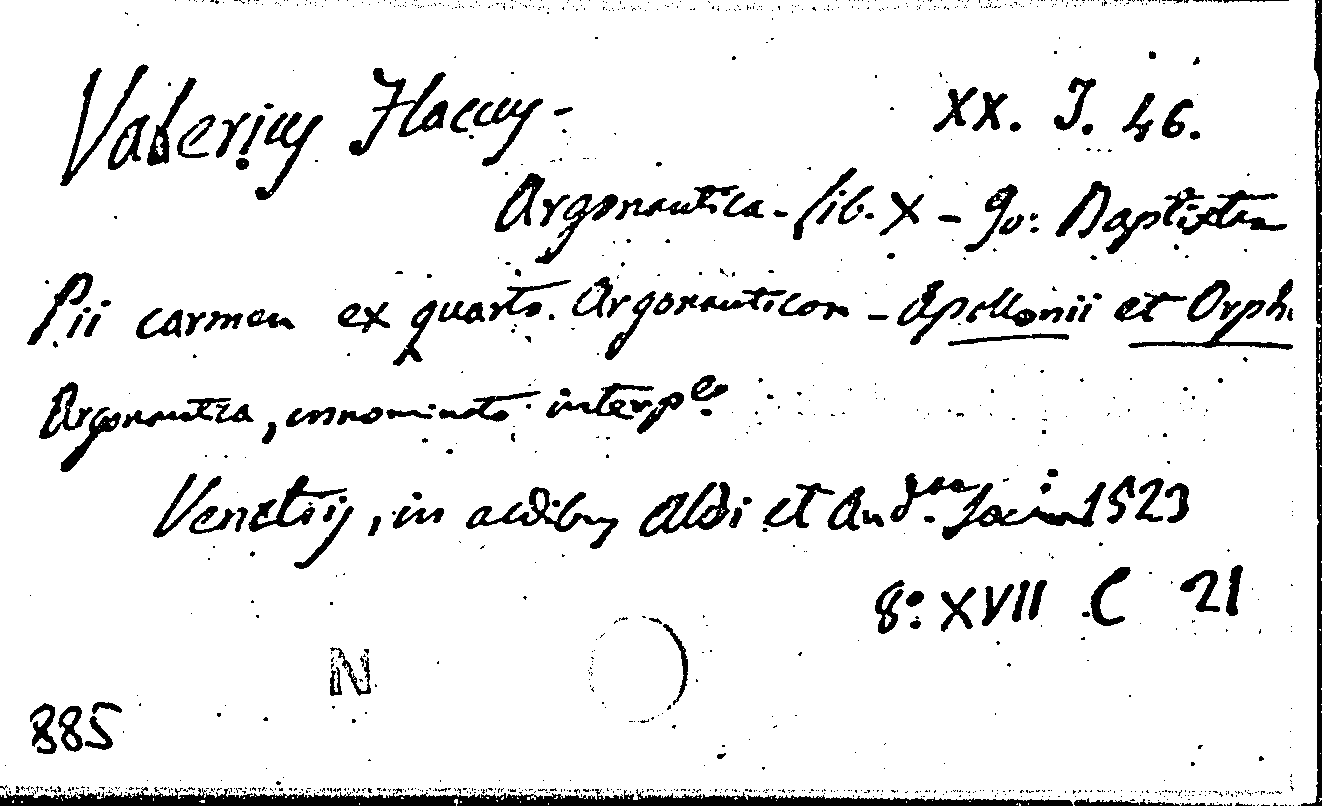 Valerius Flaccus - XX. J. 46.
Argonautica - lib. X - Jo: Baptistæ
Pii carmen ex quarto Argonauticon - Apollonii et Orph.
Argonautica, innominato interpe.
Venetiis, in aedibus Aldi et And.ae Soceri 1523
8º: XVII C 21
N
885